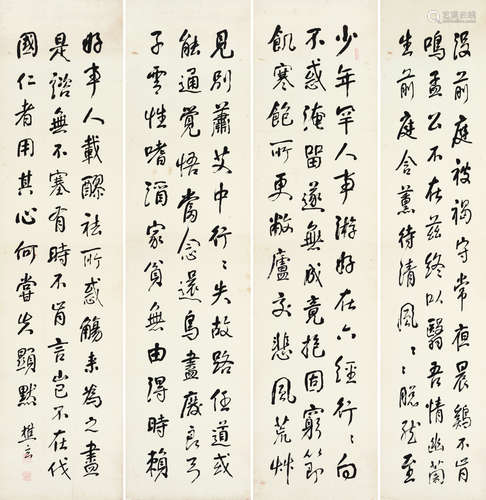 少年罕人事游好在六經行〻向
不惑淹留遂無成竟抱固窮節
飢寒飽所更敝廬交悲風荒艸
沒前庭被褐守常夜晨鷄不肯
鳴孟公不在兹終以翳吾情幽蘭
生前庭含薰待清風〻〻脫然至
見別蕭艾中行〻失故路任道或
能通覺悟當念還鳥盡廢良弓
子雲性嗜酒家貧無由得時賴
好事人載醪祛所惑觴来為之盡
是諮無不塞有時不肯言豈不在伐
國仁者用其心何嘗失顯默